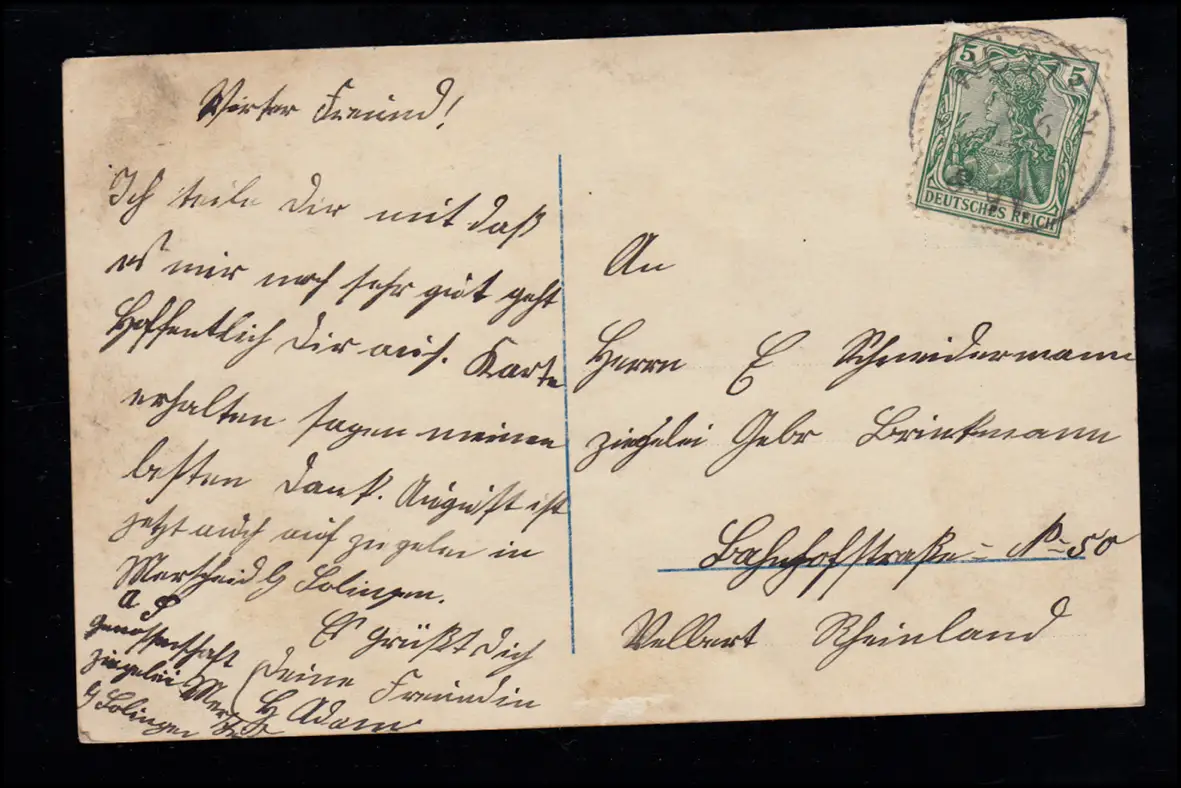 Werter Freund!
Ich teile Dir mit daß
es mir noch sehr gut geht
Hoffentlich Dir auch. Karte
erhalten sagen meinen
besten Dank. August ist
jetzt auch auf ziegelei in
Merscheid b/ Solingen.
Es grüßt Dich
Deine Freundin
H Adam
Genossenschaft
ziegelei Mersch
b/ Solingen
5 5
DEUTSCHES REICH
An
Herrn E Schneidermann
ziegelei Gebr Brinkmann
Bahnhofstraße N 50
Velbert Rheinland